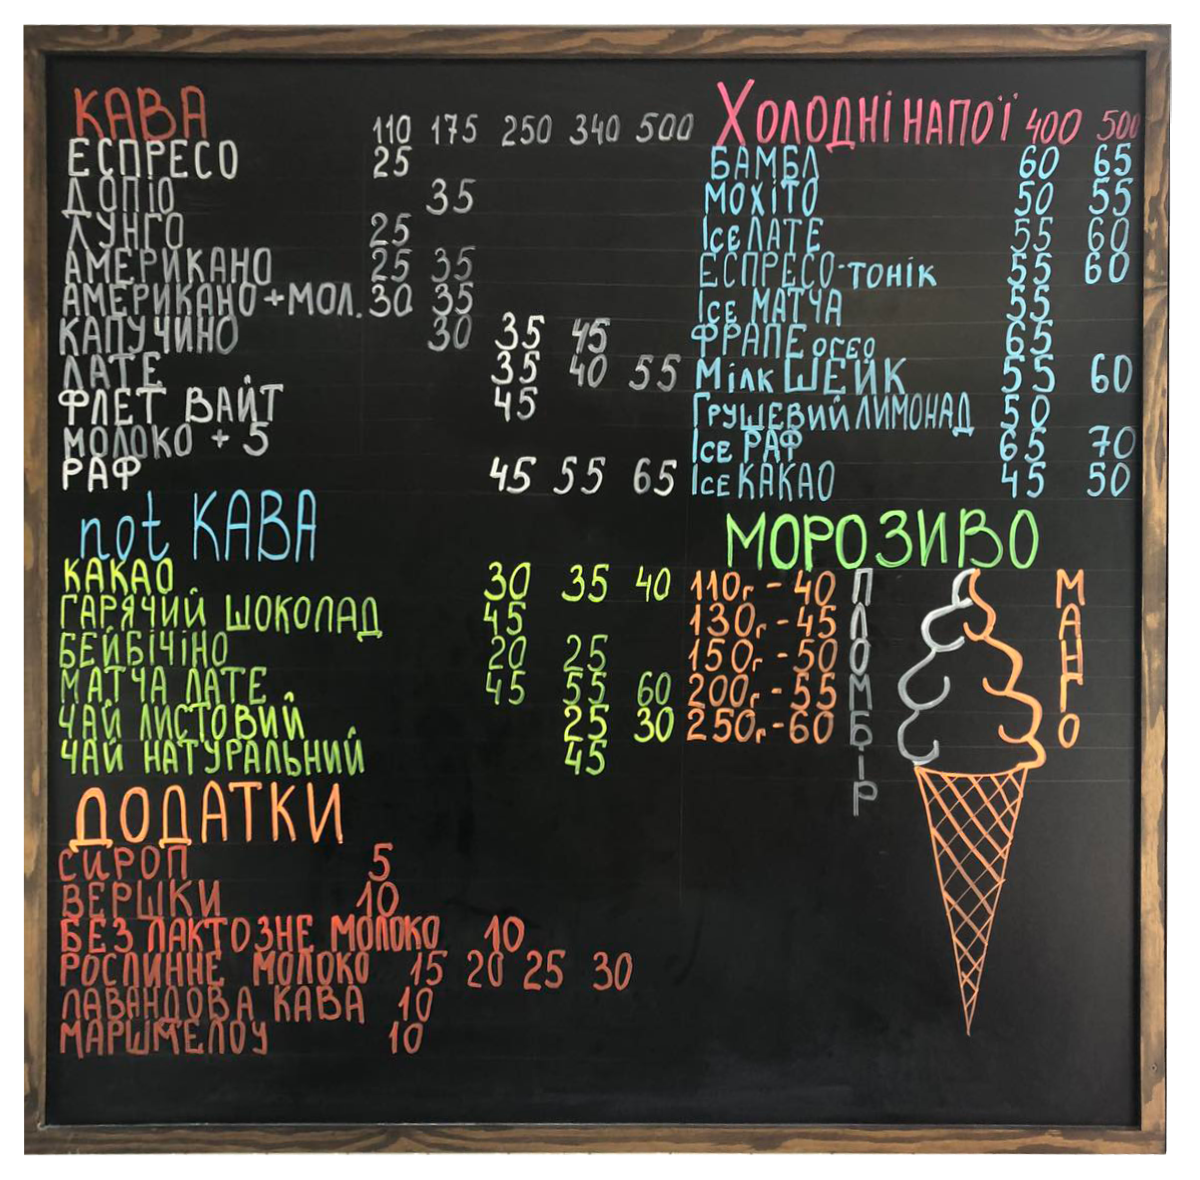 КАВА 110 175 250 340 500
ЕСПРЕСО 25
ДОПІО 35
ЛУНГО 25
АМЕРИКАНО 25 35
АМЕРИКАНО + МОЛ. 30 35
КАПУЧИНО 30 35 45
ЛАТЕ 35 40 55
ФЛЕТ ВАЙТ 45
МОЛОКО + 5
РАФ 45 55 65
not КАВА
КАКАО 30 35 40
ГАРЯЧИЙ ШОКОЛАД 45
БЕЙБІЧІНО 20 25
МАТЧА ЛАТЕ 45 55 60
ЧАЙ ЛИСТОВИЙ 25 30
ЧАЙ НАТУРАЛЬНИЙ 45
ДОДАТКИ
СИРОП 5
ВЕРШКИ 10
БЕЗ ЛАКТОЗНЕ МОЛОКО 10
РОСЛИННЕ МОЛОКО 15 20 25 30
ЛАВАНДОВА КАВА 10
МАРШМЕЛОУ 10
ХОЛОДНІ НАПОЇ 400 500
БАМБЛ 60 65
МОХІТО 50 55
Ice ЛАТЕ 55 60
ЕСПРЕСО-ТОНІК 55 60
Ice МАТЧА 55
ФРАПЕ ОСЕО 65
Мілк ШЕЙК 55 60
ГРУШЕВИЙ ЛИМОНАД 50
Ice РАФ 65 70
Ice КАКАО 45 50
МОРОЗИВО
110г - 40
130г - 45
150г - 50
200г - 55
250г - 60
ПЛОМБІР
МАНГО